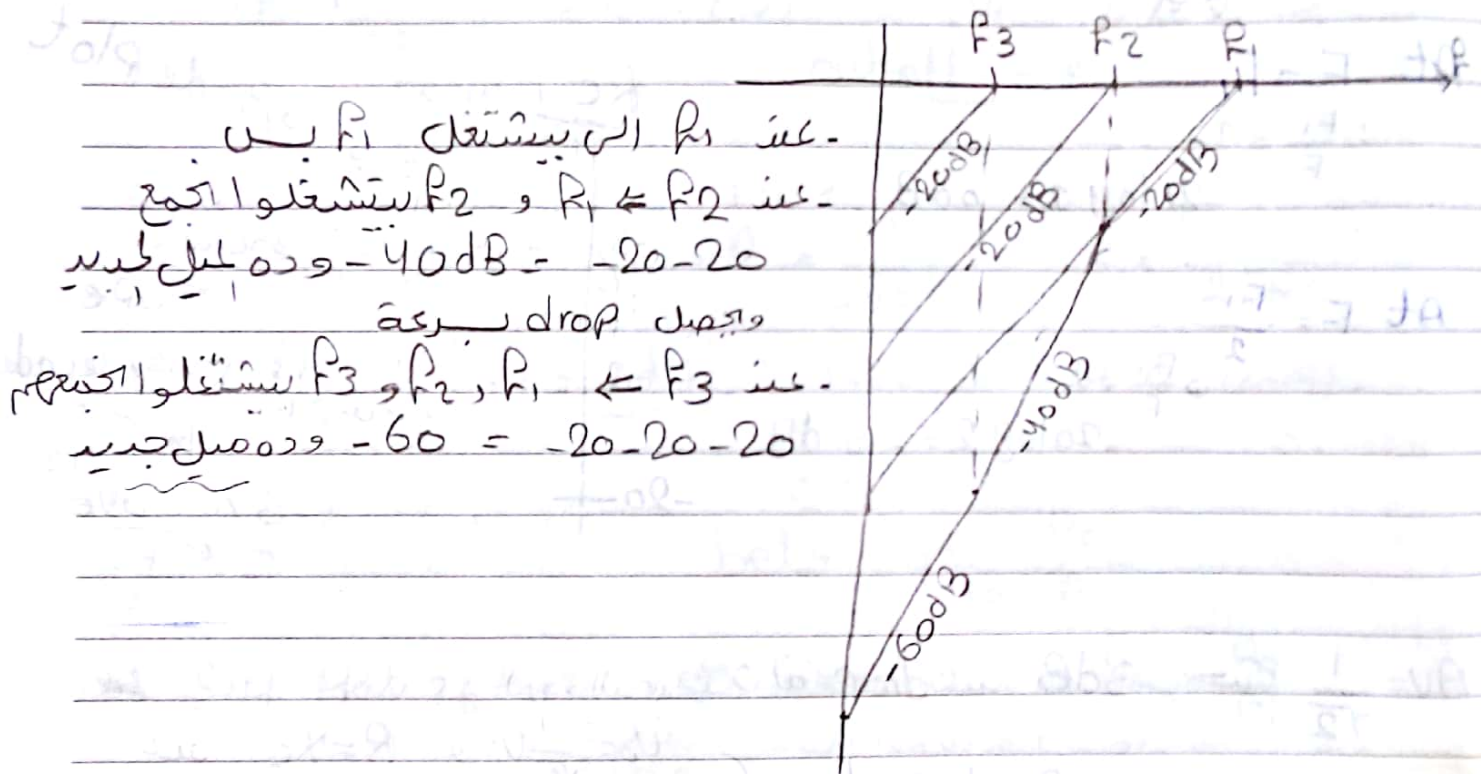 f3 f2 f1 f
- عند f1 الي بيشتغل f1 بس
- عند f2 ⇐ f1 و f2 بيتشغلوا اجمع
-20-20 = -40dB وده الميل الجديد
ويحصل drop بسرعة
- عند f3 ⇐ f1 , f2 و f3 بيشتغلوا اجمعهم
-20-20-20 = -60 وده ميل جديد
-20dB
-20dB
-20dB
-40dB
-60dB